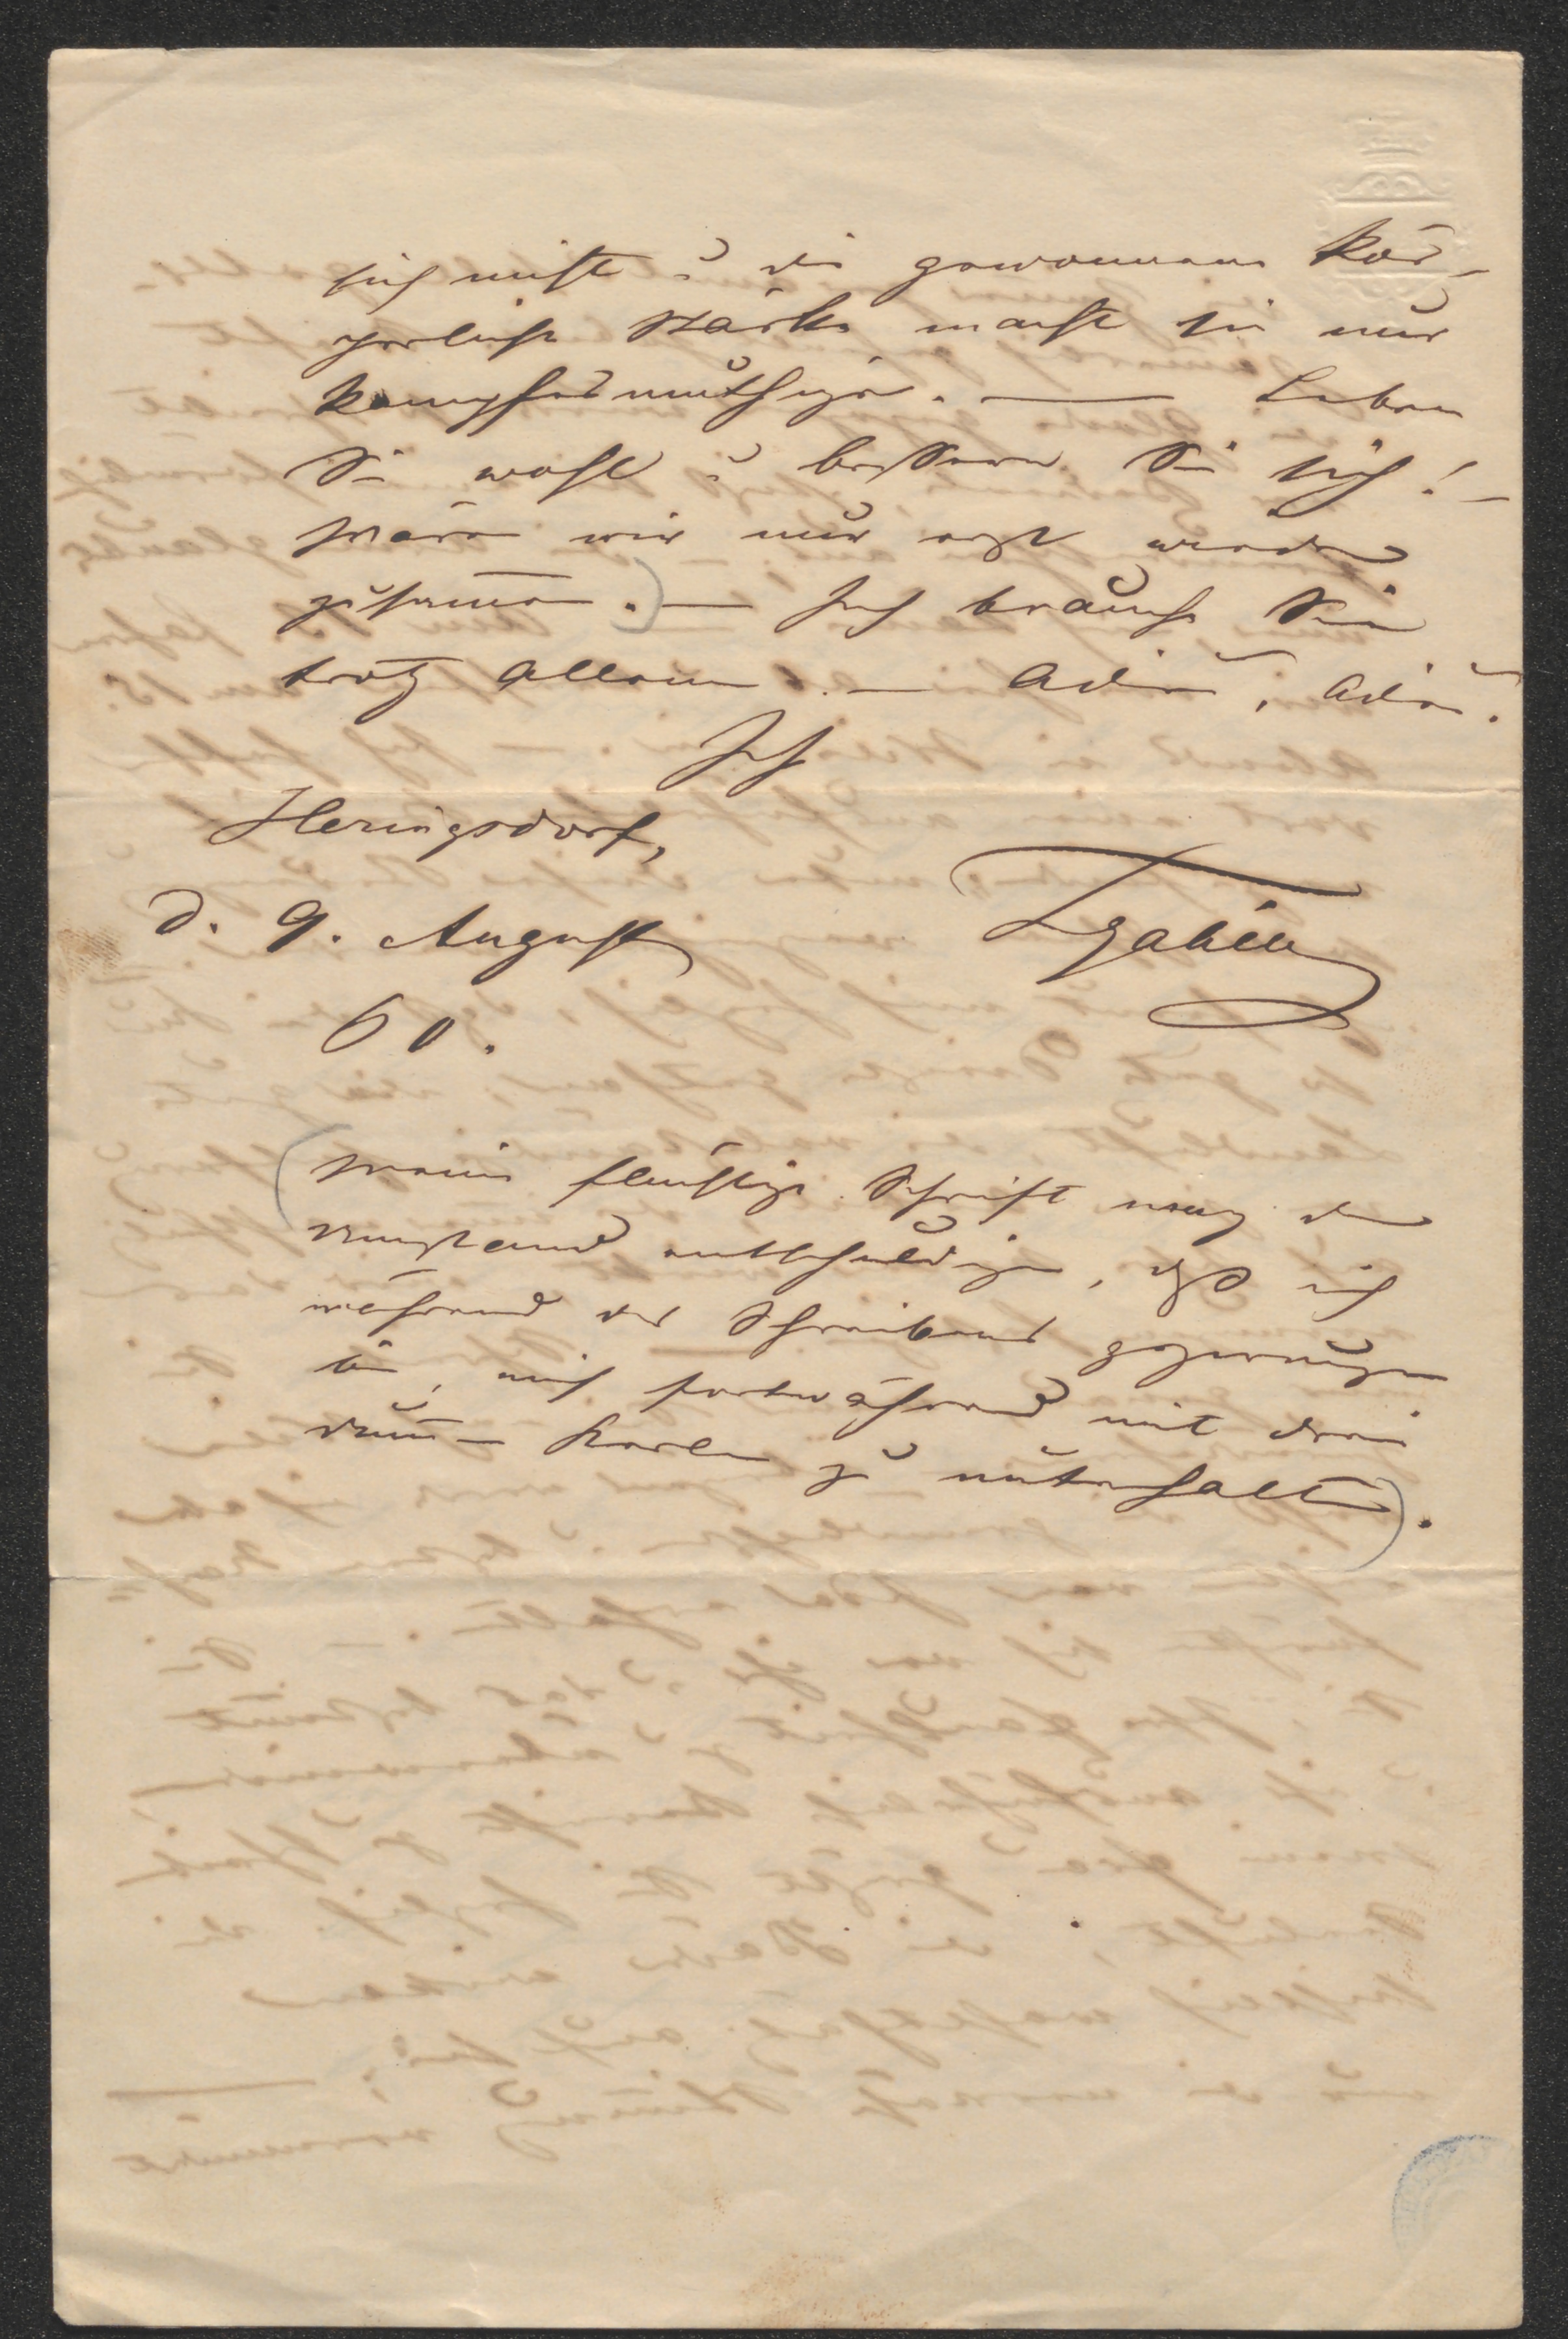 sich nicht u die gewonnene kör-
perliche Stärke macht sie nur
kampfesmuthiger. — Leben
Sie wohl u bessern Sie sich! —
Wären wir nur erst wieder
zusammen. — Ich brauche Sie
trotz allem. — Adieu, Adieu.
Ihr
Heringsdorf,
d. 9. August
60.
(Meine flüchtige Schrift mag der
Umstand entschuldigen, daß ich
während des Schreibens gezwungen
bin, mich fortwährend mit drei
dummen Kerlen zu unterhalten).